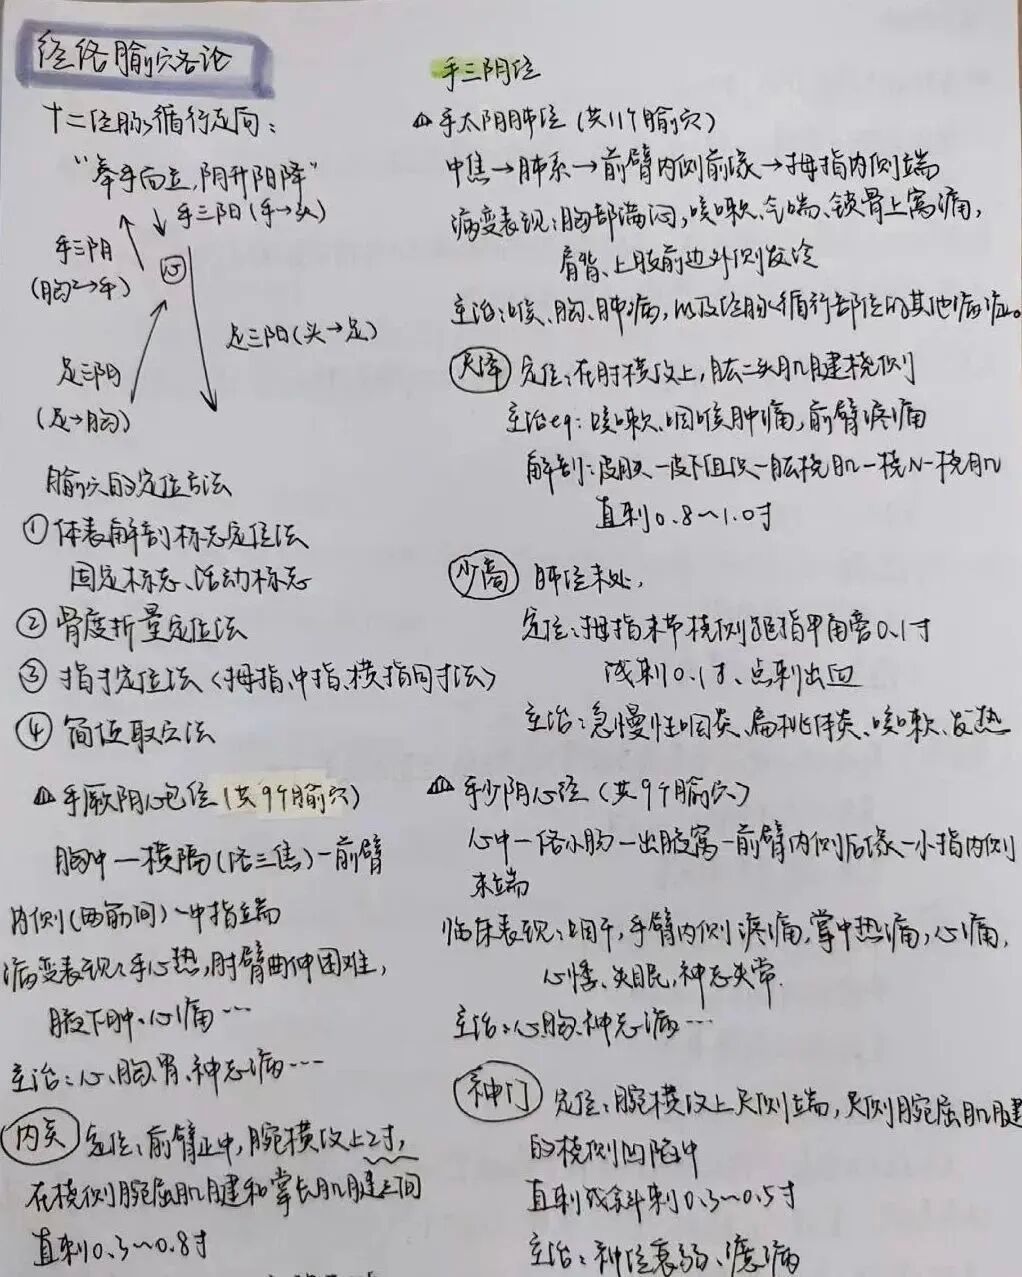 经络腧穴各论
十二经脉循行走向：
“举手而立，阴升阳降”
手三阳（手→头）
手三阴
（胸→手）
心
足三阳（头→足）
足三阴
（足→胸）
腧穴的定位方法
①体表解剖标志定位法
固定标志、活动标志
②骨度折量定位法
③指寸定位法〈拇指、中指、横指同寸法〉
④简便取穴法
手厥阴心包经（共9个腧穴）
胸中—横隔（络三焦）—前臂
内侧（两筋间）—中指端
病变表现：手心热，肘臂曲伸困难，
腋下肿、心痛…
主治：心、胸、胃、神志病…
内关 定位：前臂正中，腕横纹上2寸，
在桡侧腕屈肌腱和掌长肌腱之间
直刺0.5～0.8寸
手三阴经
手太阴肺经（共11个腧穴）
中焦→肺系→前臂内侧前缘→拇指内侧端
病变表现：胸部满闷，咳嗽、气喘、锁骨上窝痛，
肩背、上肢前边外侧发冷
主治：喉、胸、肺病，以及经脉循行部位的其他病症。
尺泽 定位：在肘横纹上，肱二头肌腱桡侧
主治eg：咳嗽、咽喉肿痛，前臂疼痛
解剖：皮肤—皮下组织—肱桡肌—桡N—桡肌
直刺0.8～1.0寸
少商 肺经末处，
定位：拇指末节桡侧距指甲角旁0.1寸
浅刺0.1寸、点刺出血
主治：急慢性咽炎、扁桃体炎、咳嗽、发热
手少阴心经（共9个腧穴）
心中—络小肠—出腋窝—前臂内侧后缘—小指内侧
末端
临床表现：咽干，手臂内侧疼痛，掌中热痛，心痛，
心悸、失眠，神志失常.
主治：心、胸、神志病…
神门 定位：腕横纹上尺侧端，尺侧腕屈肌腱
的桡侧凹陷中
直刺或斜刺0.3～0.5寸
主治：神经衰弱、癔病